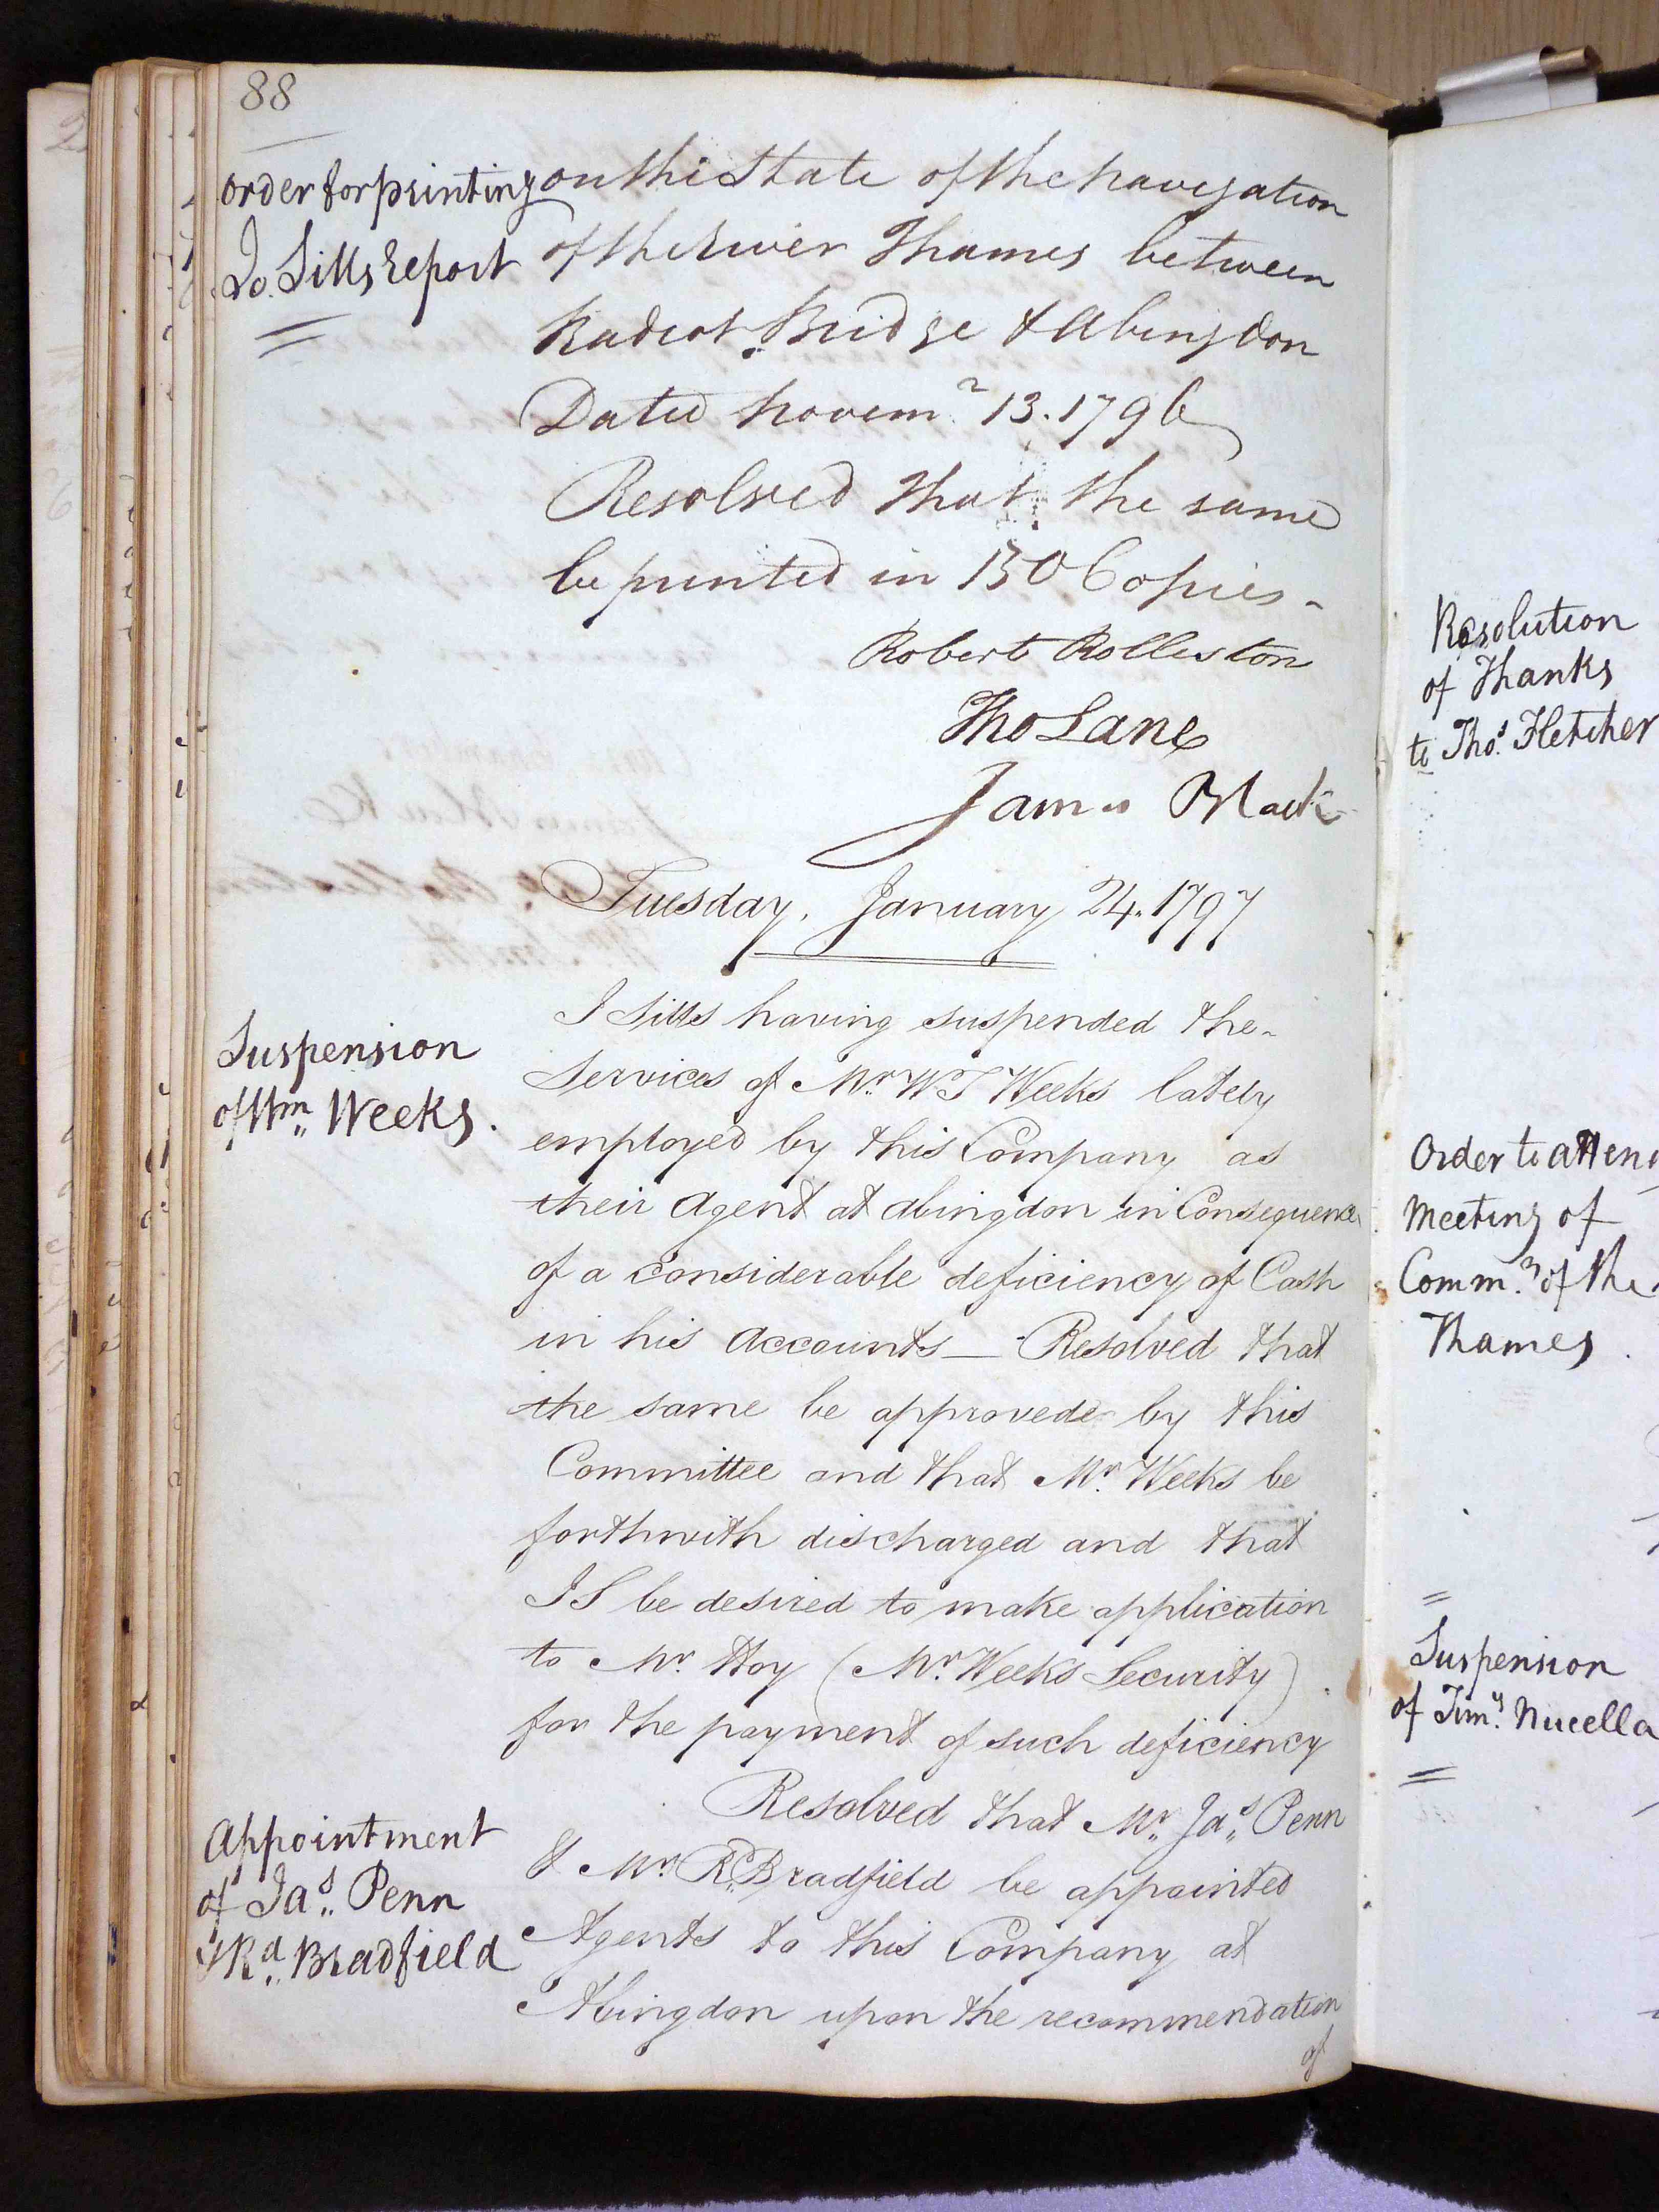 88
Order for printing
Jo. Sills Report
on the State of the navigation
of the River Thames between
Radcot Bridge & Abingdon
Dated Novemr. 13. 1796
Resolved that the same
be printed in 150 Copies -
Robert Rolleston
Tho Lane
James Black
Tuesday, January 24. 1797
Suspension
of Wm. Weeks.
J Sills having suspended the
Services of Mr. W J Weeks lately
employed by this Company as
their Agent at Abingdon in Consequence
of a considerable deficiency of Cash
in his Accounts — Resolved that
the same be approved by this
Committee and that Mr. Weeks be
forthwith discharged and that
J S be desired to make application
to Mr. Hoy (Mr. Weeks Security)
for the payment of such deficiency
Appointment
of Jas. Penn
& Rd. Bradfield
Resolved that Mr. Jas. Penn
& Mr. Rd. Bradfield be appointed
Agents to this Company at
Abingdon upon the recommendation
of
Resolution
of Thanks
to Thos. Fletcher
Order to atten
Meeting of
Comm.rs of the
Thames
Suspension
of Timy. Nucella